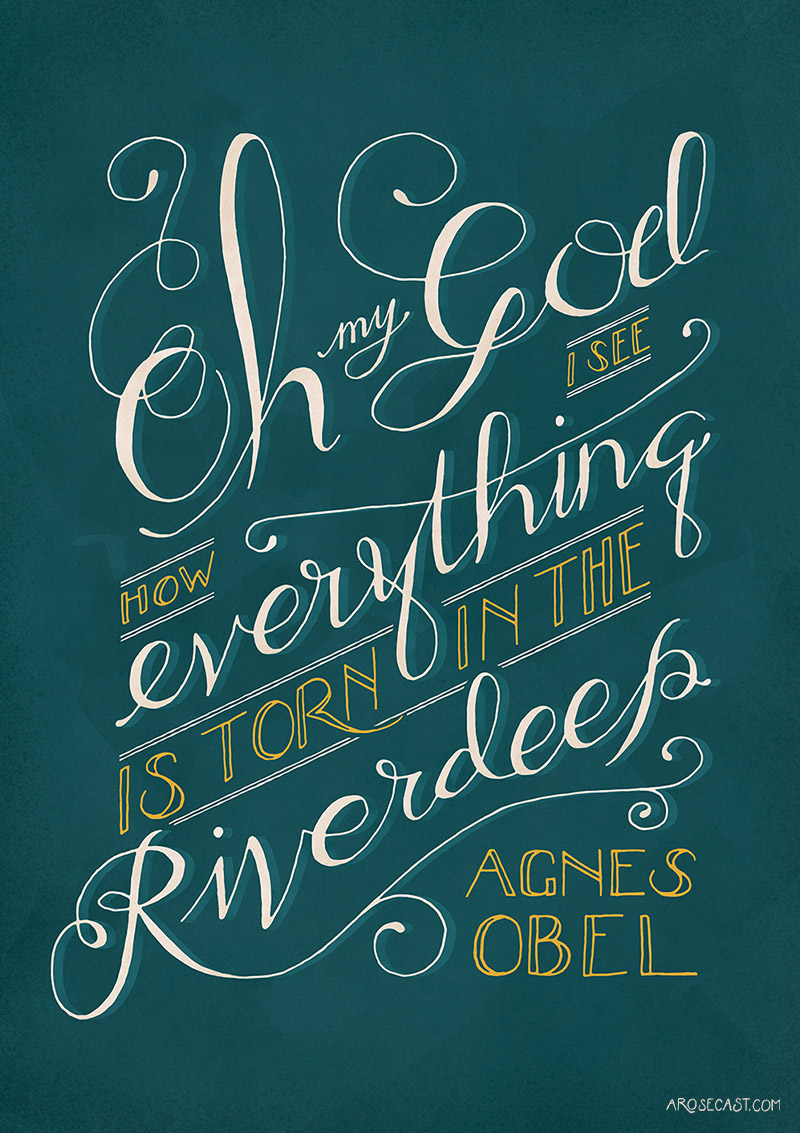 Oh my God
I SEE
HOW everything
IS TORN IN THE
Riverdeep
AGNES
OBEL
AROSECAST.COM